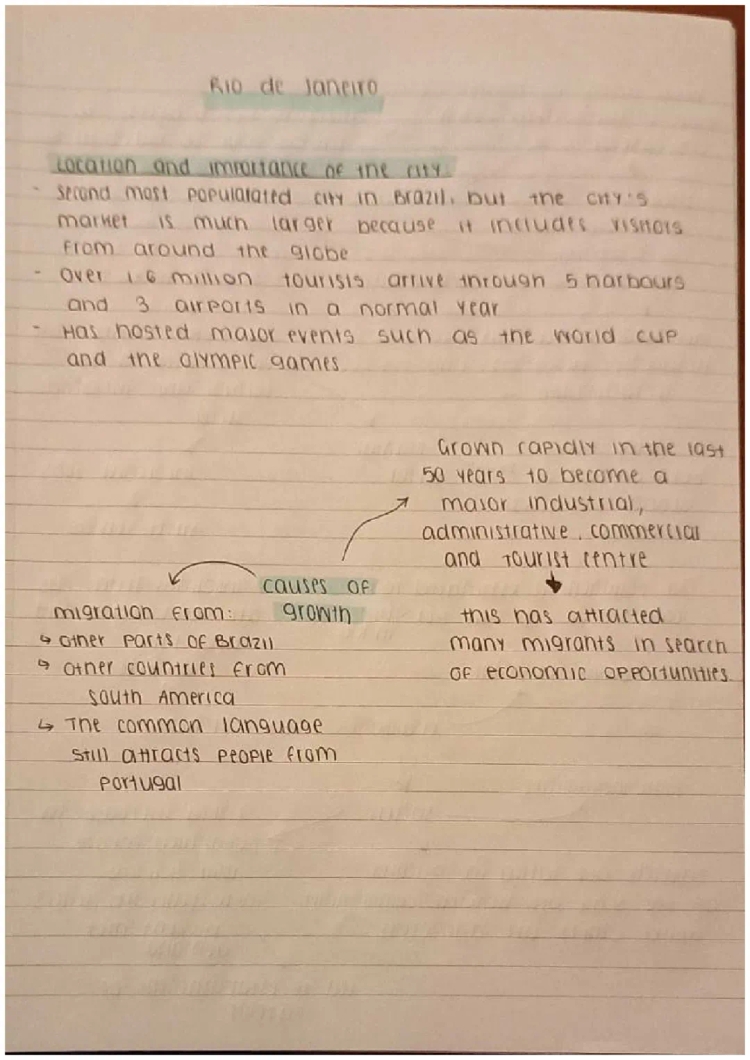 Rio de Janeiro
Location and importance of the city
- Second most populatated city in Brazil, but the city's
market is much larger because it includes visitors
from around the globe
- Over 1.6 million tourists arrive through 5 harbours
and 3 airports in a normal year
- Has hosted major events such as the world cup
and the olympic games
Grown rapidly in the last
50 years to become a
major industrial,
administrative, commercial
and tourist centre
this has attracted
many migrants in search
of economic opportunities.
causes of
growth
migration from:
↳ other parts of Brazil
↳ other countries from
South America
↳ The common language
still attracts people from
Portugal